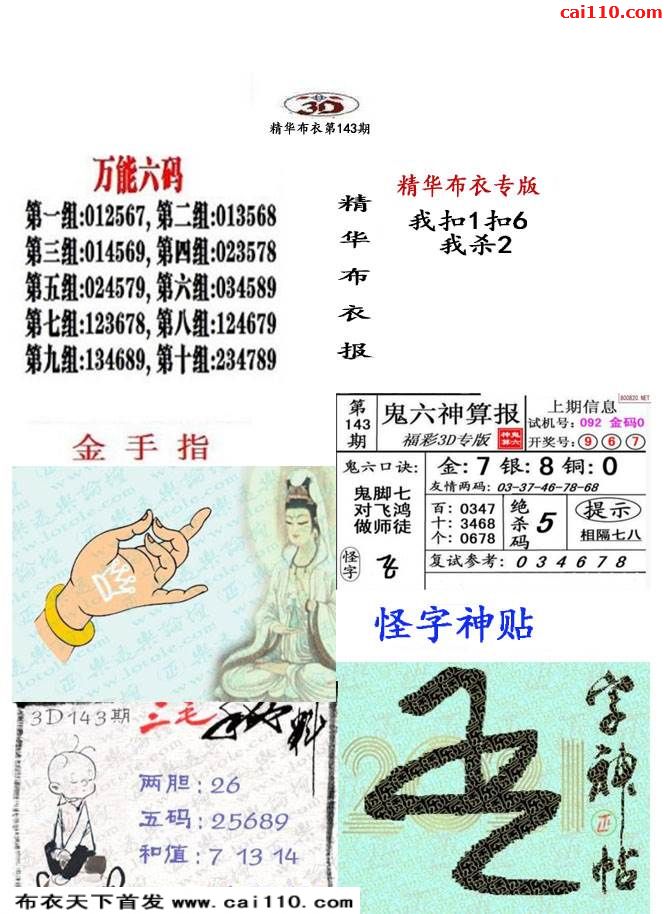 cai110.com
3D
精华布衣第143期
万能六码
第一组:012567,第二组:013568
第三组:014569,第四组:023578
第五组:024579,第六组:034589
第七组:123678,第八组:124679
第九组:134689,第十组:234789
精华布衣报
精华布衣专版
我扣1扣6
我杀2
金手指
第143期
鬼六神算报
福彩3D专版
800820.NET
上期信息
试机号: 092 金码0
开奖号: 9 6 7
鬼六口诀:
鬼脚七
对飞鸿
做师徒
怪字
金: 7 银: 8 铜: 0
友情两码: 03-37-46-78-68
百: 0347
十: 3468
个: 0678
绝杀码
5
提示
相隔七八
复试参考: 034678
怪字神贴
3D143期
三毛
料
两胆: 26
五码: 25689
和值: 7 13 14
布衣天下首发 www.cai110.com
2021
字神正帖